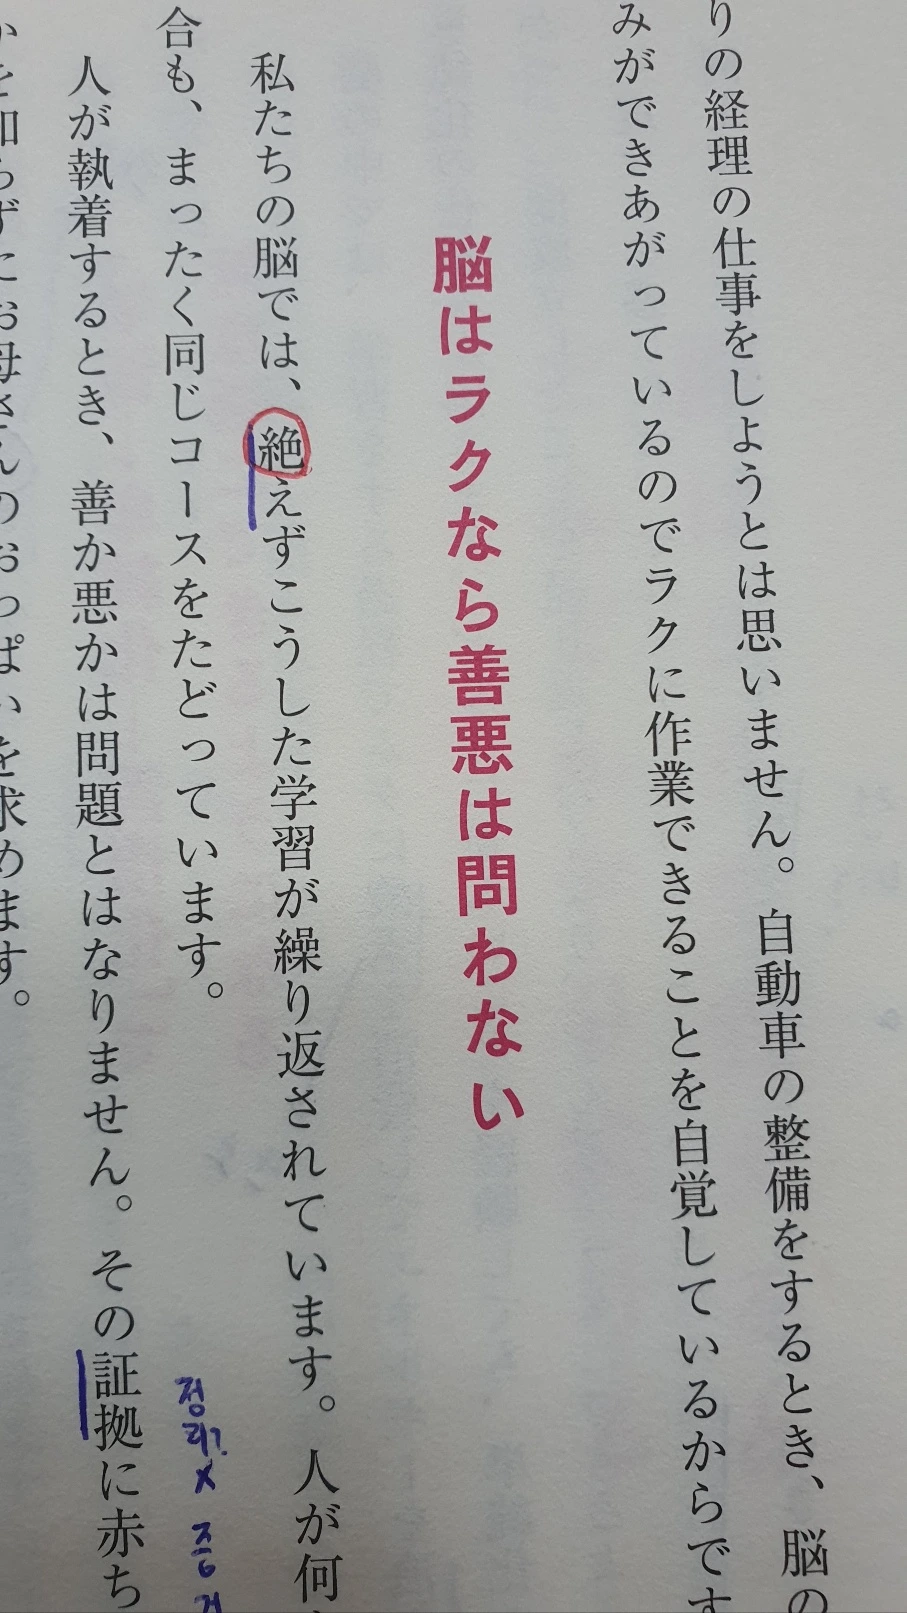 りの経理の仕事をしようとは思いません。自動車の整備をするとき、脳の
みができあがっているのでラクに作業できることを自覚しているからです
脳はラクなら善悪は問わない
私たちの脳では、絶えずこうした学習が繰り返されています。人が何
合も、まったく同じコースをたどっています。
人が執着するとき、善か悪かは問題とはなりません。その証拠に赤ち
かを知らずにお母さんのおっぱいを求めます。
정
X 증거